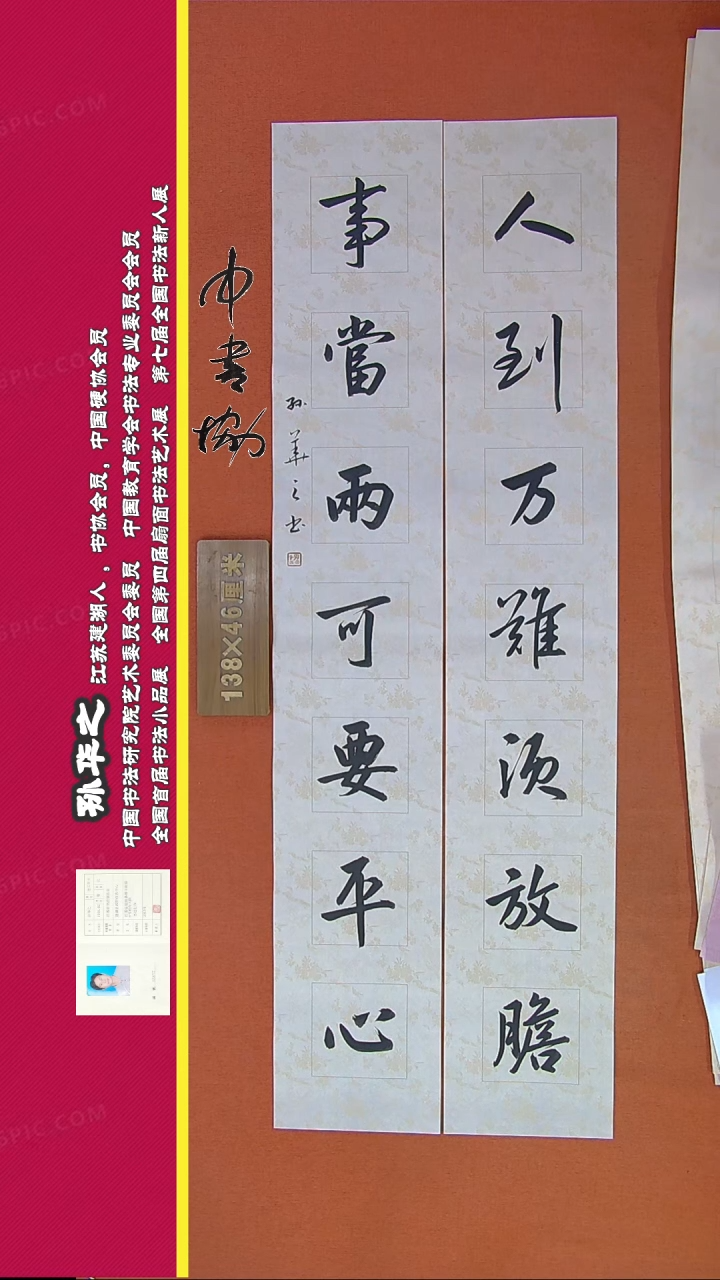 人到万難须放膽
事當兩可要平心
孙華之书
中书协
138×46厘米
孙华之 江苏建湖人，书协会员，中国硬协会员
中国书法研究院艺术委员会委员 中国教育学会书法专业委员会会员
全国首届书法小品展 全国第四届扇面书法艺术展 第七届全国书法新人展